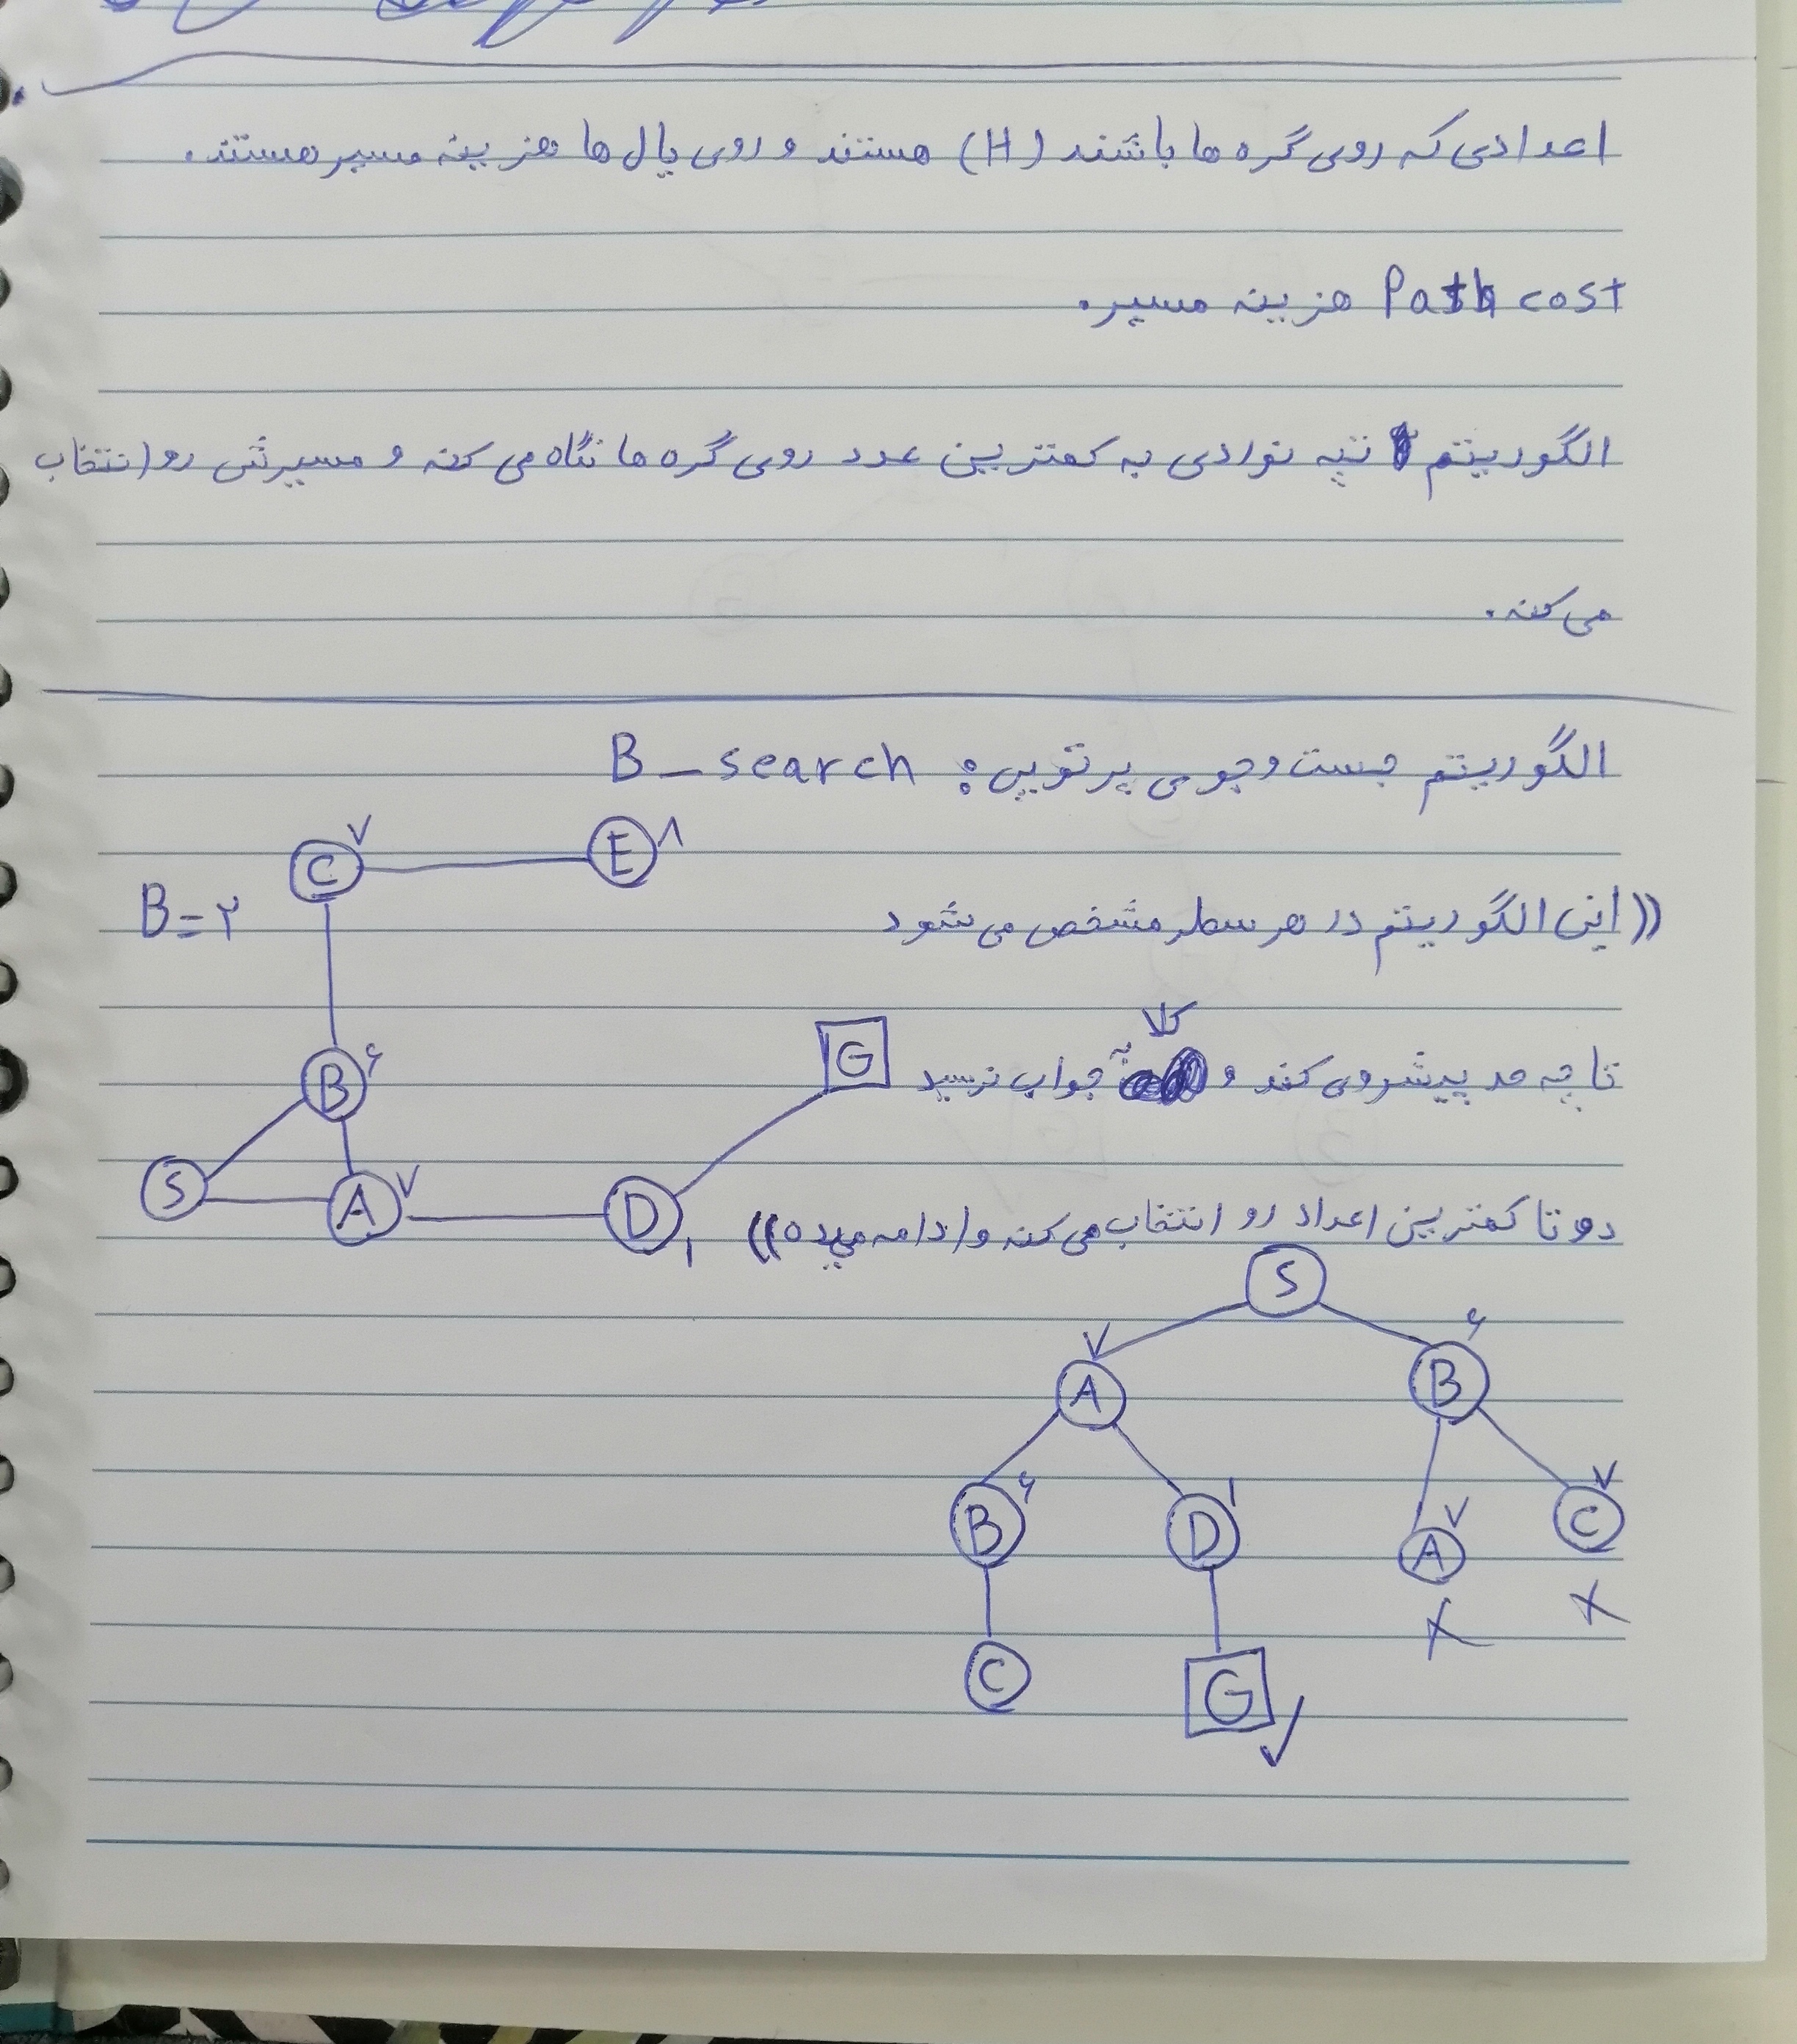 اعدادی که روی گره ها باشند (H) هستند و روی یال ها هزینه مسیر هستند.
Path cost هزینه مسیر.
الگوریتم تپه نوردی به کمترین عدد روی گره ها نگاه می کنه و مسیرش رو انتخاب
می کنه.
الگوریتم جست و جوی پرتویی: B_search
C ۷ E ۸
B=۲
((این الگوریتم در هر سطر مشخص می شود
کلا
تا چه حد پیشروی کند و جواب نرسید
G
B ۶
S A ۷ D ۱
دو تا کمترین اعداد رو انتخاب می کنه و ادامه میده))
S
A ۷ B ۶
B ۶ D ۱ A ۷ C ۷
C G